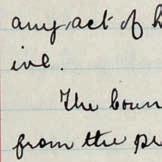 any act of
ive.
The boun
from the pr